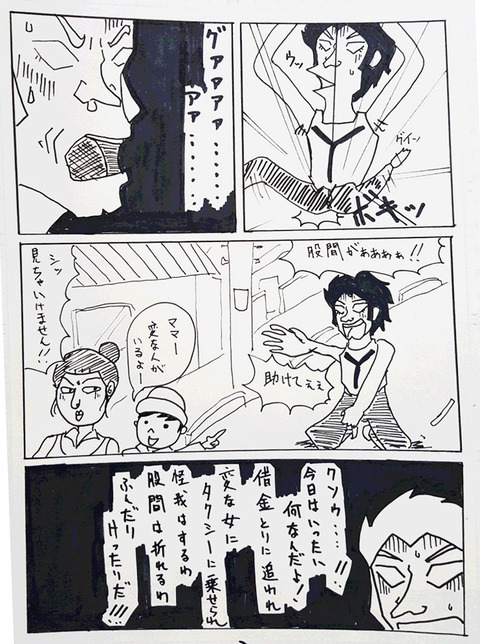 ウッ
グイーン
ボキッ
グァァァァ……
ァァ……
股間がぁぁぁぁ!!
助けてぇぇ
ママー
変な人が
いるよー
シッ
見ちゃいけません!!
クソゥ……!!
今日はいったい
何なんだよ!
借金とりに追われ
変な女に
タクシーに乗せられ
怪我はするわ
股間は折れるわ
ふんだり
けったりだ!!!